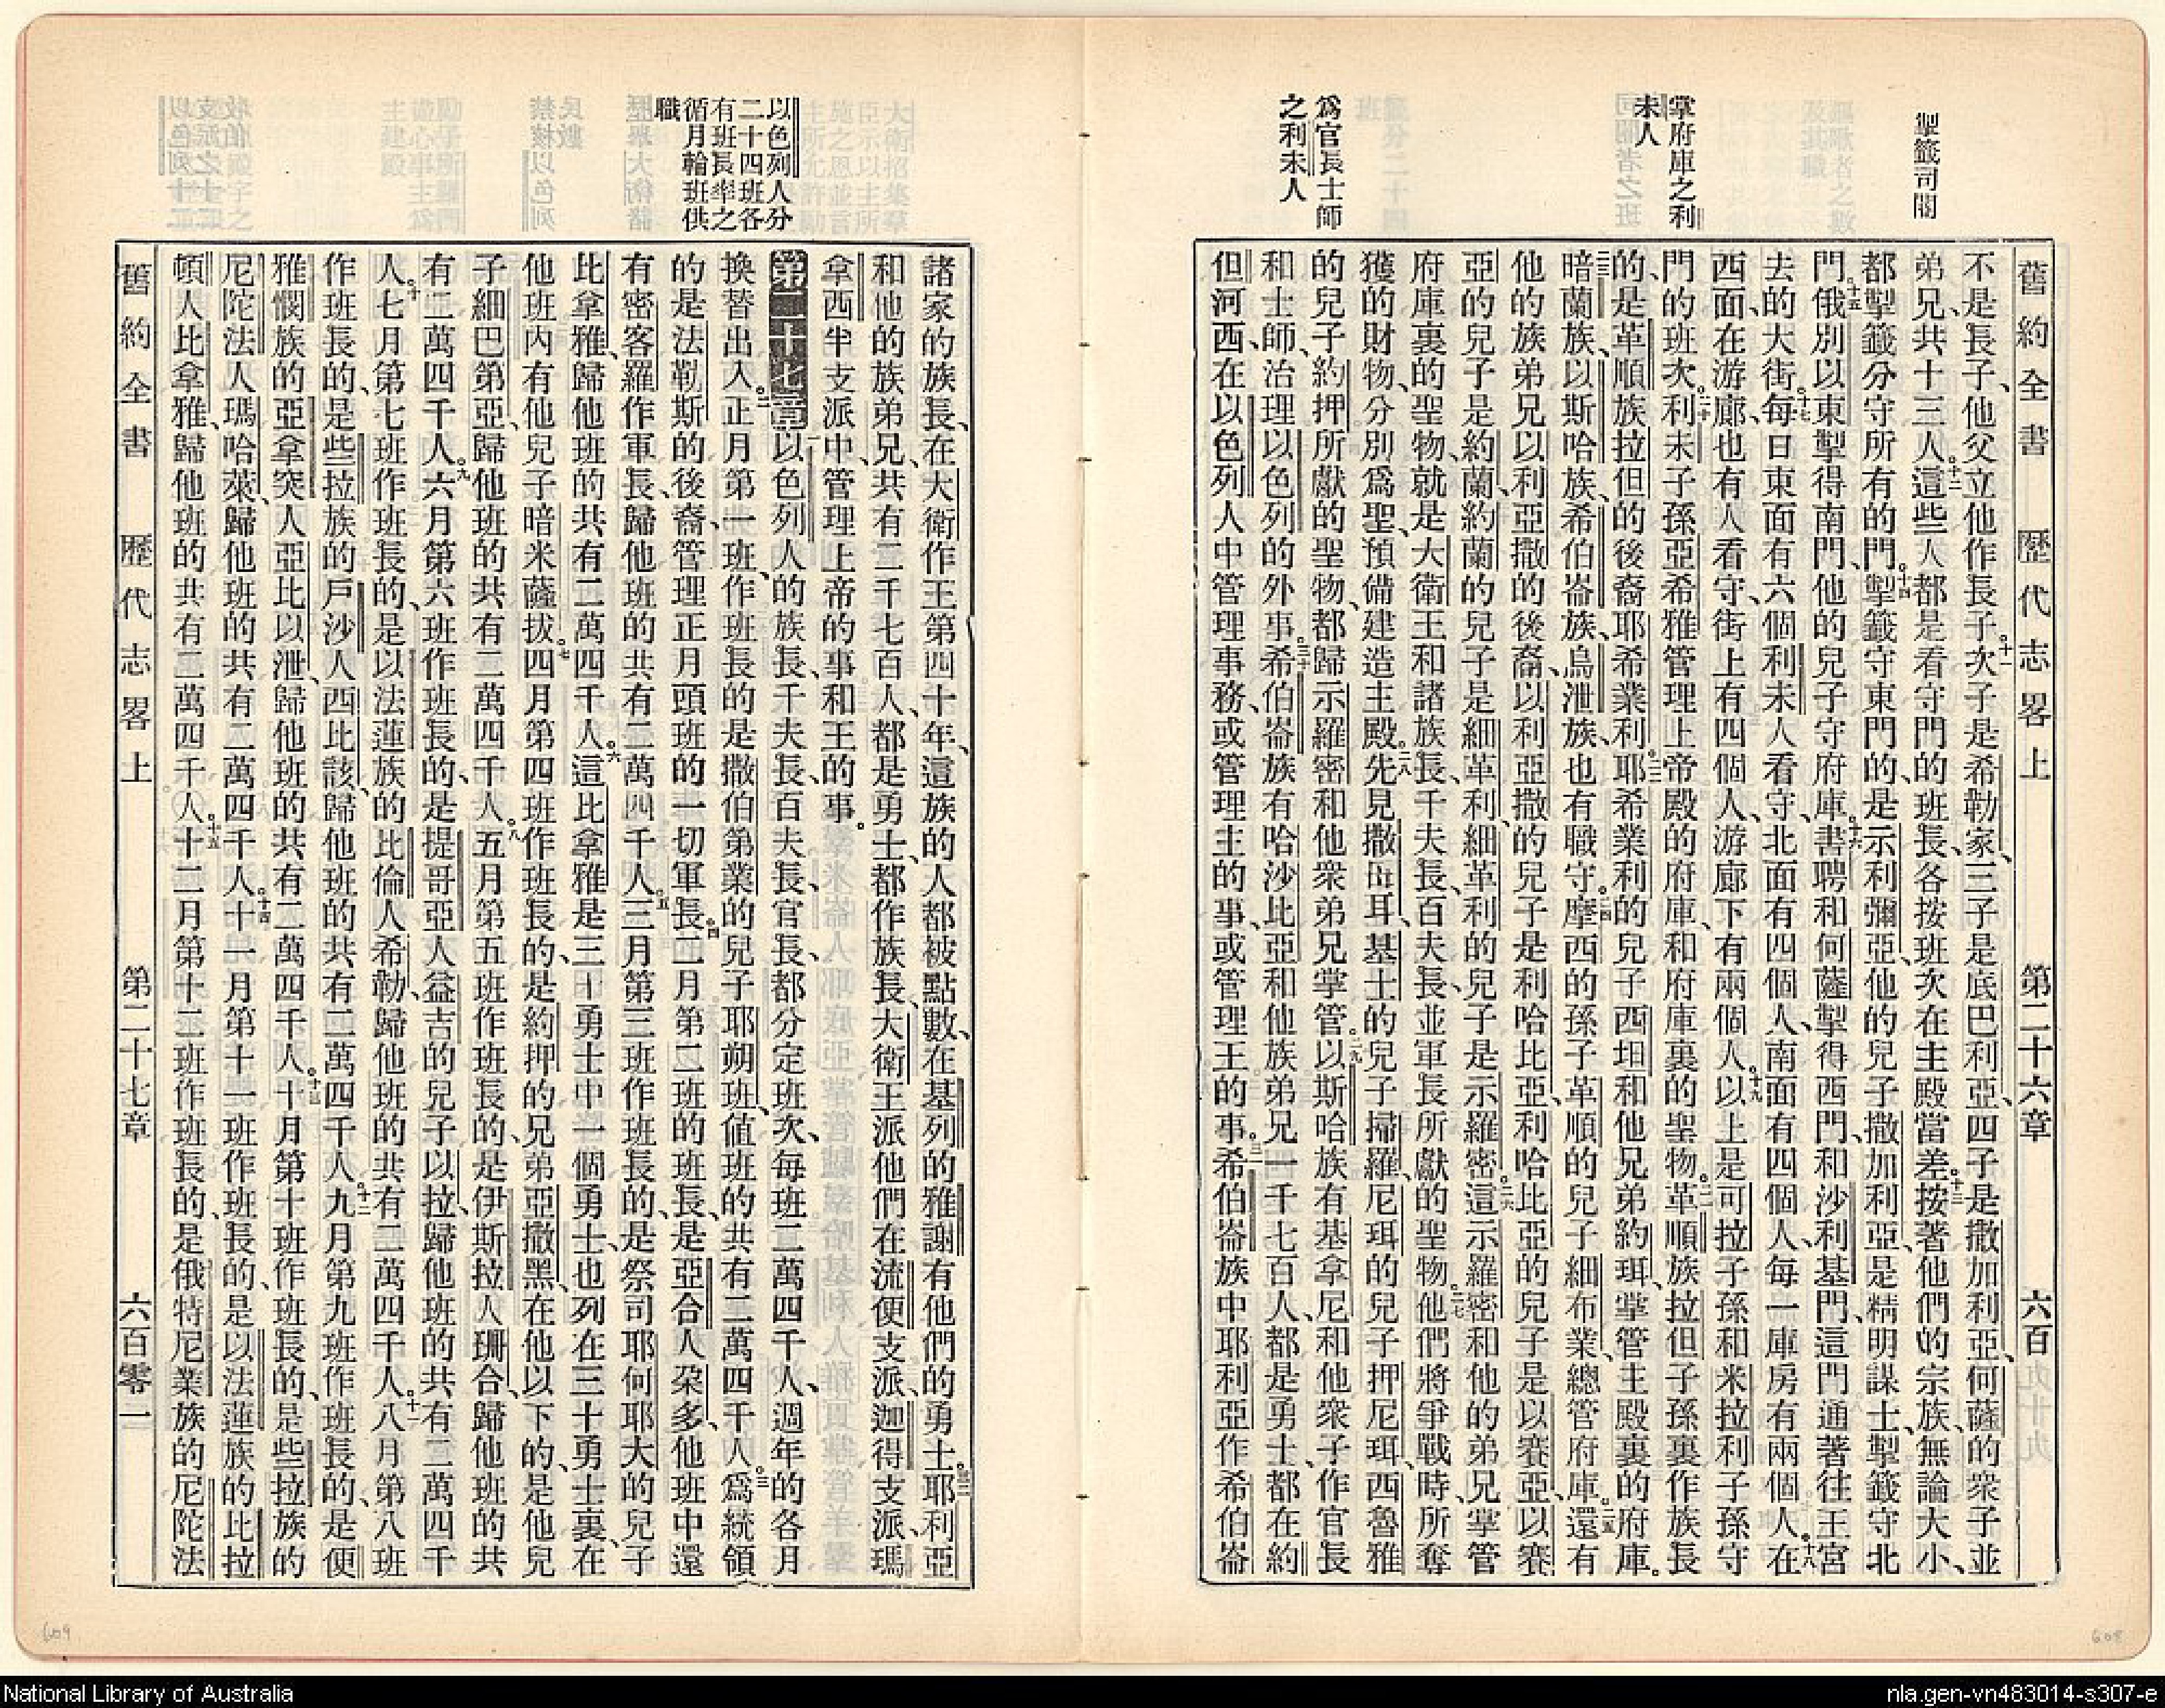 掣籤司閽
掌府庫之利
未人
爲官長士師
之利未人
舊約全書 歷代志畧上 第二十六章 六百
不是長子、他父立他作長子。十一次子是希勒家、三子是底巴利亞、四子是撒加利亞、何薩的衆子並
弟兄、共十三人。十二這些人都是看守門的班長、各按班次在主殿當差。十三按著他們的宗族、無論大小、
都掣籤分守所有的門。十四掣籤守東門的、是示利彌亞、他的兒子撒加利亞、是精明謀士、掣籤守北
門。十五俄別以東掣得南門、他的兒子守府庫。十六書聘和何薩掣得西門、和沙利基門、這門通著往王宮
去的大街。十七每日東面有六個利未人看守、北面有四個人、南面有四個人、每一庫房有兩個人。十八在
西面、在游廊也有人看守、街上有四個人、游廊下有兩個人。十九以上是可拉子孫和米拉利子孫守
門的班次。二十利未子孫亞希雅管理上帝殿的府庫、和府庫裏的聖物。二一革順族拉但子孫裏作族長
的、是革順族拉但的後裔耶希業利。二二耶希業利的兒子四坦和他兄弟約珥、掌管主殿裏的府庫。
二三暗蘭族、以斯哈族、希伯崙族、烏泄族、也有職守。二四摩西的孫子革順的兒子細布業、總管府庫。二五還有
他的族弟兄以利亞撒的後裔、以利亞撒的兒子是利哈比亞、利哈比亞的兒子是以賽亞、以賽
亞的兒子是約蘭、約蘭的兒子是細革利、細革利的兒子是示羅密。二六這示羅密和他的弟兄掌管
府庫裏的聖物、就是大衛王和諸族長、千夫長、百夫長、並軍長所獻的聖物。二七他們將爭戰時、所奪
獲的財物、分別爲聖、預備建造主殿。二八先見撒母耳、基士的兒子掃羅、尼珥的兒子押尼珥、西魯雅
的兒子約押所獻的聖物、都歸示羅密和他衆弟兄掌管。二九以斯哈族有基拿尼和他衆子作官長
和士師、治理以色列的外事。三十希伯崙族有哈沙比亞和他族弟兄一千七百人、都是勇士、都在約
但河西、在以色列人中管理事務、或管理主的事、或管理王的事。三一希伯崙族中耶利亞作希伯崙
以色列人分
二十四班各
有班長率之
循月輪班供
職
諸家的族長、在大衛作王第四十年、這族的人都被點數、在基列的雅謝有他們的勇士。三二耶利亞
和他的族弟兄、共有二千七百人、都是勇士、都作族長、大衛王派他們在流便支派、迦得支派、瑪
拿西半支派中、管理上帝的事和王的事。
第二十七章一以色列人的族長、千夫長、百夫長、官長、都分定班次、每班二萬四千人、週年的各月
換替出入。二正月第一班、作班長的是撒伯第業的兒子耶朔班、値班的共有二萬四千人。三爲統領
的是法勒斯的後裔、管理正月頭班的一切軍長。四二月第二班的班長、是亞合人朶多、他班中還
有密客羅作軍長、歸他班的共有二萬四千人。五三月第三班作班長的、是祭司耶何耶大的兒子
比拿雅、歸他班的共有二萬四千人。六這比拿雅是三十勇士中一個勇士、也列在三十勇士裏、在
他班內有他兒子暗米薩拔。七四月第四班作班長的、是約押的兄弟亞撒黑、在他以下的是他兒
子細巴第亞、歸他班的共有二萬四千人。八五月第五班作班長的、是伊斯拉人珊合、歸他班的共
有二萬四千人。九六月第六班作班長的、是提哥亞人益吉的兒子以拉、歸他班的共有二萬四千
人。十七月第七班作班長的、是以法蓮族的比倫人希勒、歸他班的共有二萬四千人。十一八月第八班
作班長的、是些拉族的戶沙人西比該、歸他班的共有二萬四千人。十二九月第九班作班長的、是便
雅憫族的亞拿突人亞比以泄、歸他班的共有二萬四千人。十三十月第十班作班長的、是些拉族的
尼陀法人瑪哈萊、歸他班的共有二萬四千人。十四十一月第十一班作班長的、是以法蓮族的比拉
頓人比拿雅、歸他班的共有二萬四千人。十五十二月第十二班作班長的、是俄特尼業族的尼陀法
舊約全書 歷代志畧上 第二十七章 六百零一
609
608
National Library of Australia
nla.gen-vn483014-s307-e